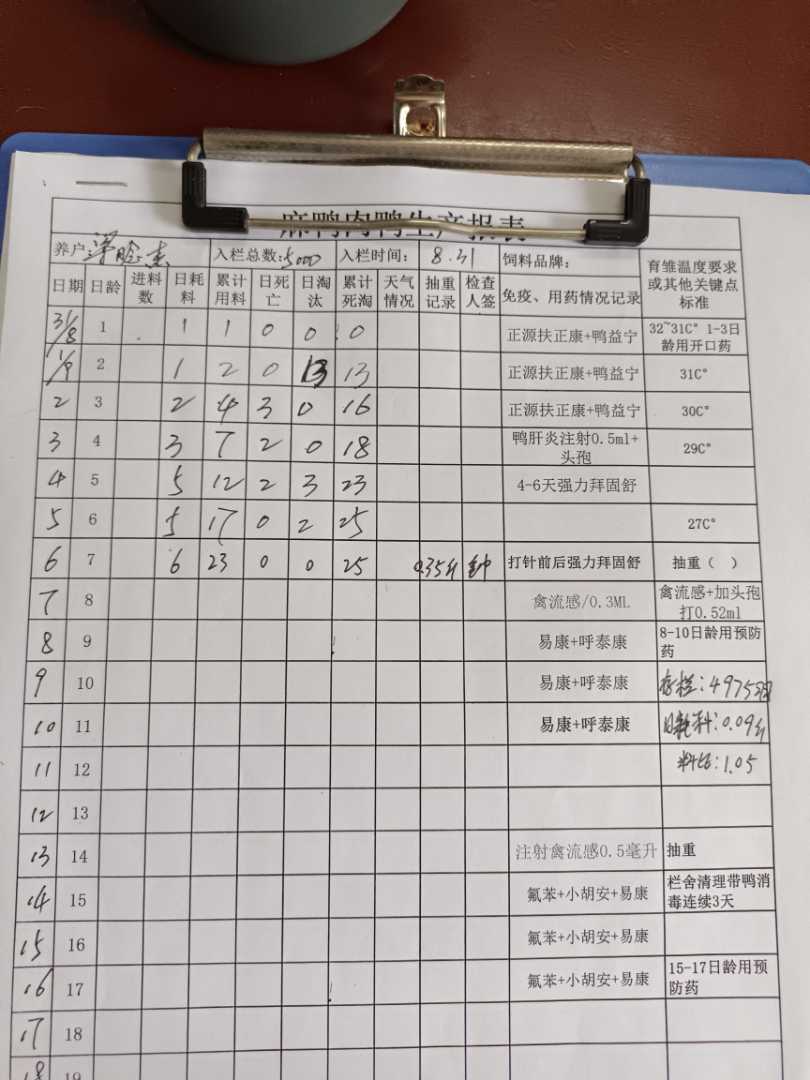 麻鸭肉鸭生产报表
养户: 入栏总数:5000 入栏时间: 8.31 饲料品牌: 育雏温度要求或其他关键点标准
日期 日龄 进料数 日耗料 累计用料 日死亡 日淘汰 累计死淘 天气情况 抽重记录 检查人签 免疫、用药情况记录
31/8 1 1 1 0 0 0 正源扶正康+鸭益宁 32~31C° 1-3日龄用开口药
1/9 2 1 2 0 13 13 正源扶正康+鸭益宁 31C°
2 3 2 4 3 0 16 正源扶正康+鸭益宁 30C°
3 4 3 7 2 0 18 鸭肝炎注射0.5ml+头孢 29C°
4 5 5 12 2 3 23 4-6天强力拜固舒
5 6 5 17 0 2 25 27C°
6 7 6 23 0 0 25 0.35斤 打针前后强力拜固舒 抽重( )
7 8 禽流感/0.3ML 禽流感+加头孢打0.52ml
8 9 易康+呼泰康 8-10日龄用预防药
9 10 易康+呼泰康 存栏:4975羽
10 11 易康+呼泰康 日耗料:0.09斤
11 12 料比:1.05
12 13
13 14 注射禽流感0.5毫升 抽重
14 15 氟苯+小胡安+易康 栏舍清理带鸭消毒连续3天
15 16 氟苯+小胡安+易康
16 17 氟苯+小胡安+易康 15-17日龄用预防药
17 18
18 19